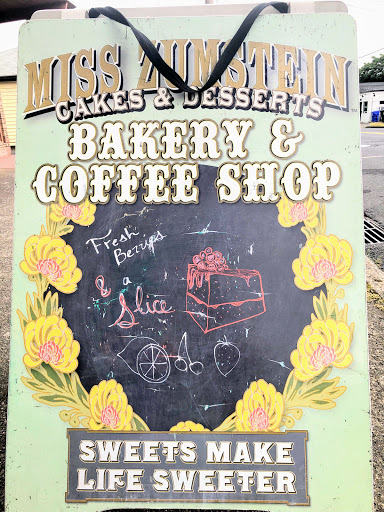 MISS ZUMSTEIN
CAKES & DESSERTS
BAKERY &
COFFEE SHOP
Fresh
Berries
& a
Slice
SWEETS MAKE
LIFE SWEETER